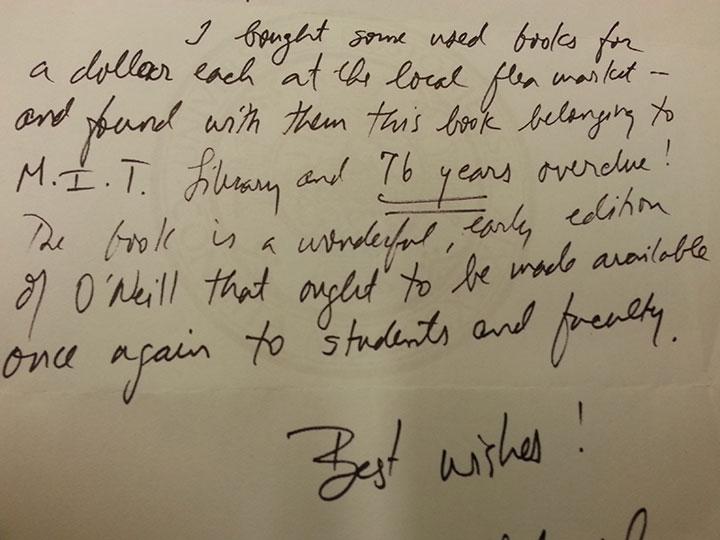 I bought some used books for
a dollar each at the local flea market –
and found with them this book belonging to
M.I.T. Library and 76 years overdue!
The book is a wonderful, early edition
of O'Neill that ought to be made available
once again to students and faculty.
Best wishes!